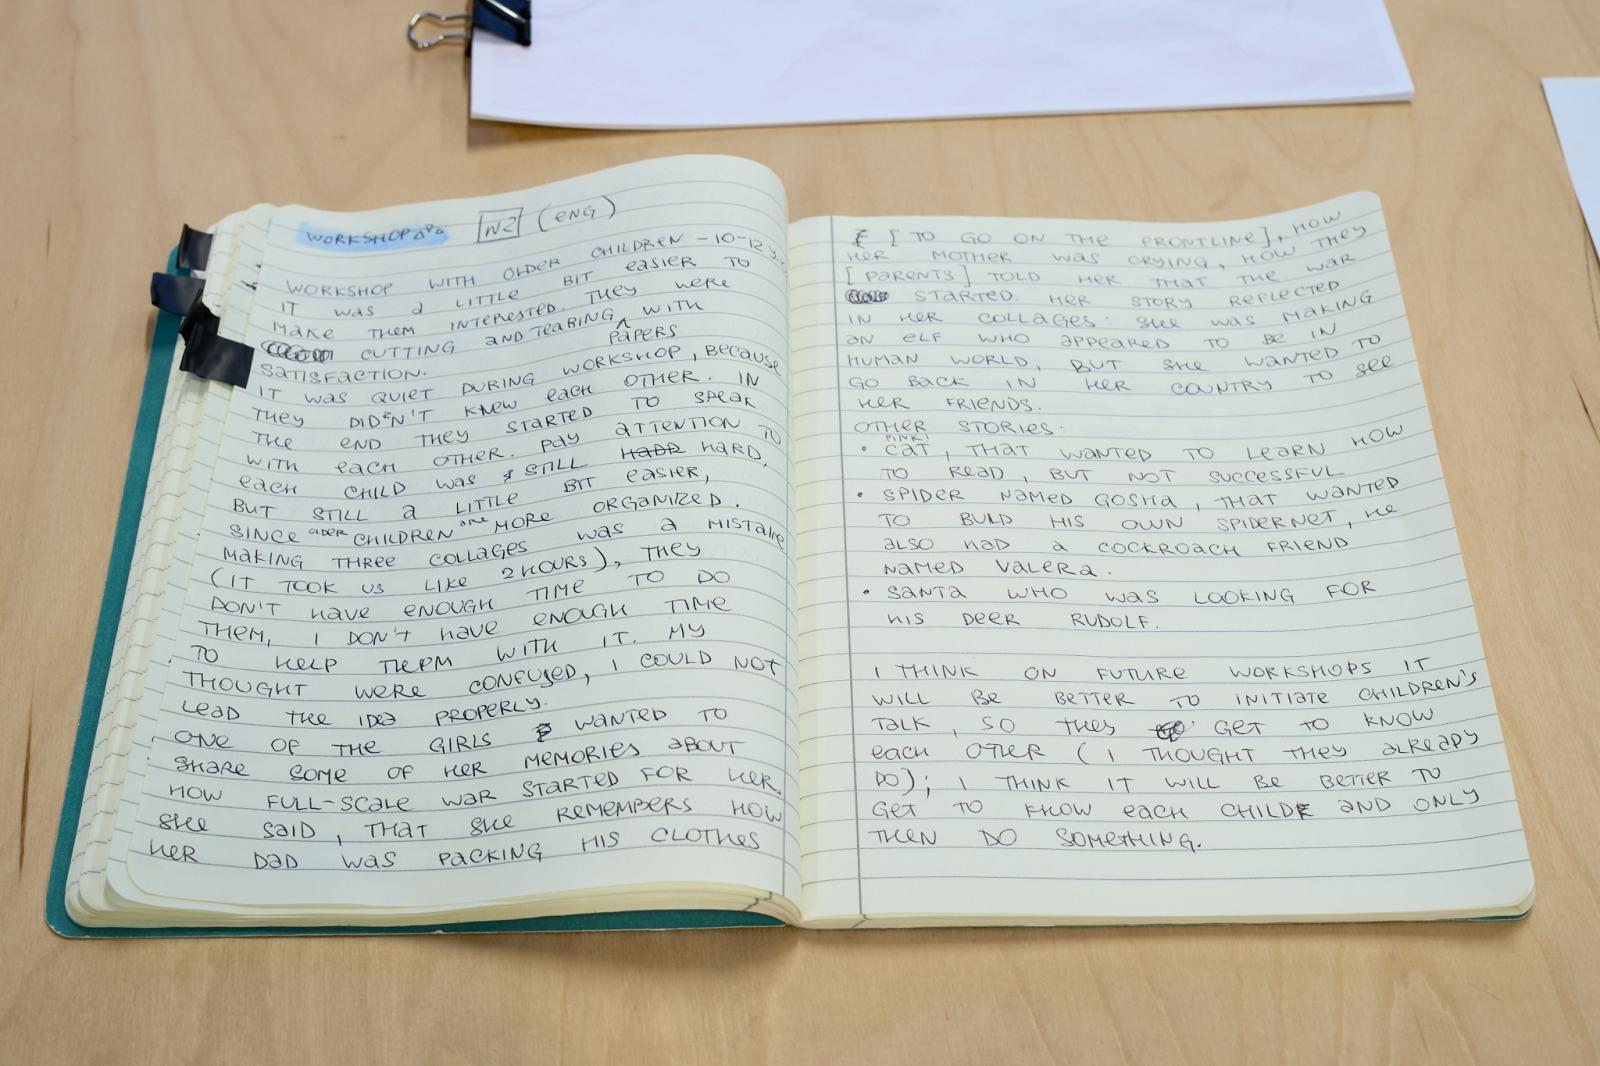 WORKSHOP
N2 (ENG)
WORKSHOP WITH OLDER CHILDREN - 10-12 y.
IT WAS A LITTLE BIT EASIER TO
MAKE THEM INTERESTED. THEY WERE
CUTTING AND TEARING PAPERS WITH
SATISFACTION.
IT WAS QUIET DURING WORKSHOP, BECAUSE
THEY DIDN'T KNEW EACH OTHER. IN
THE END THEY STARTED TO SPEAK
WITH EACH OTHER. PAY ATTENTION TO
EACH CHILD WAS STILL HARD HARD,
BUT STILL A LITTLE BIT EASIER,
SINCE OLDER CHILDREN ARE MORE ORGANIZED.
MAKING THREE COLLAGES WAS A MISTAKE
(IT TOOK US LIKE 2 HOURS), THEY
DON'T HAVE ENOUGH TIME TO DO
THEM, I DON'T HAVE ENOUGH TIME
TO HELP THEPM WITH IT. MY
THOUGHT WERE CONFUSED, I COULD NOT
LEAD THE IDEA PROPERLY.
ONE OF THE GIRLS WANTED TO
SHARE SOME OF HER MEMORIES ABOUT
HOW FULL-SCALE WAR STARTED FOR HER.
SHE SAID, THAT SHE REMEMBERS HOW
HER DAD WAS PACKING HIS CLOTHES
[TO GO ON THE FRONTLINE], HOW
HER MOTHER WAS CRYING, HOW THEY
[PARENTS] TOLD HER THAT THE WAR
STARTED. HER STORY REFLECTED
IN HER COLLAGES. SHE WAS MAKING
AN ELF WHO APPEARED TO BE IN
HUMAN WORLD, BUT SHE WANTED TO
GO BACK IN HER COUNTRY TO SEE
HER FRIENDS.
OTHER STORIES:
• PINK! CAT, THAT WANTED TO LEARN HOW
TO READ, BUT NOT SUCCESSFUL
• SPIDER NAMED GOSHA, THAT WANTED
TO BUILD HIS OWN SPIDERNET, HE
ALSO HAD A COCKROACH FRIEND
NAMED VALERA.
• SANTA WHO WAS LOOKING FOR
HIS DEER RUDOLF.
I THINK ON FUTURE WORKSHOPS IT
WILL BE BETTER TO INITIATE CHILDREN'S
TALK, SO THEY GET TO KNOW
EACH OTHER (I THOUGHT THEY ALREADY
DO); I THINK IT WILL BE BETTER TO
GET TO KNOW EACH CHILD AND ONLY
THEN DO SOMETHING.